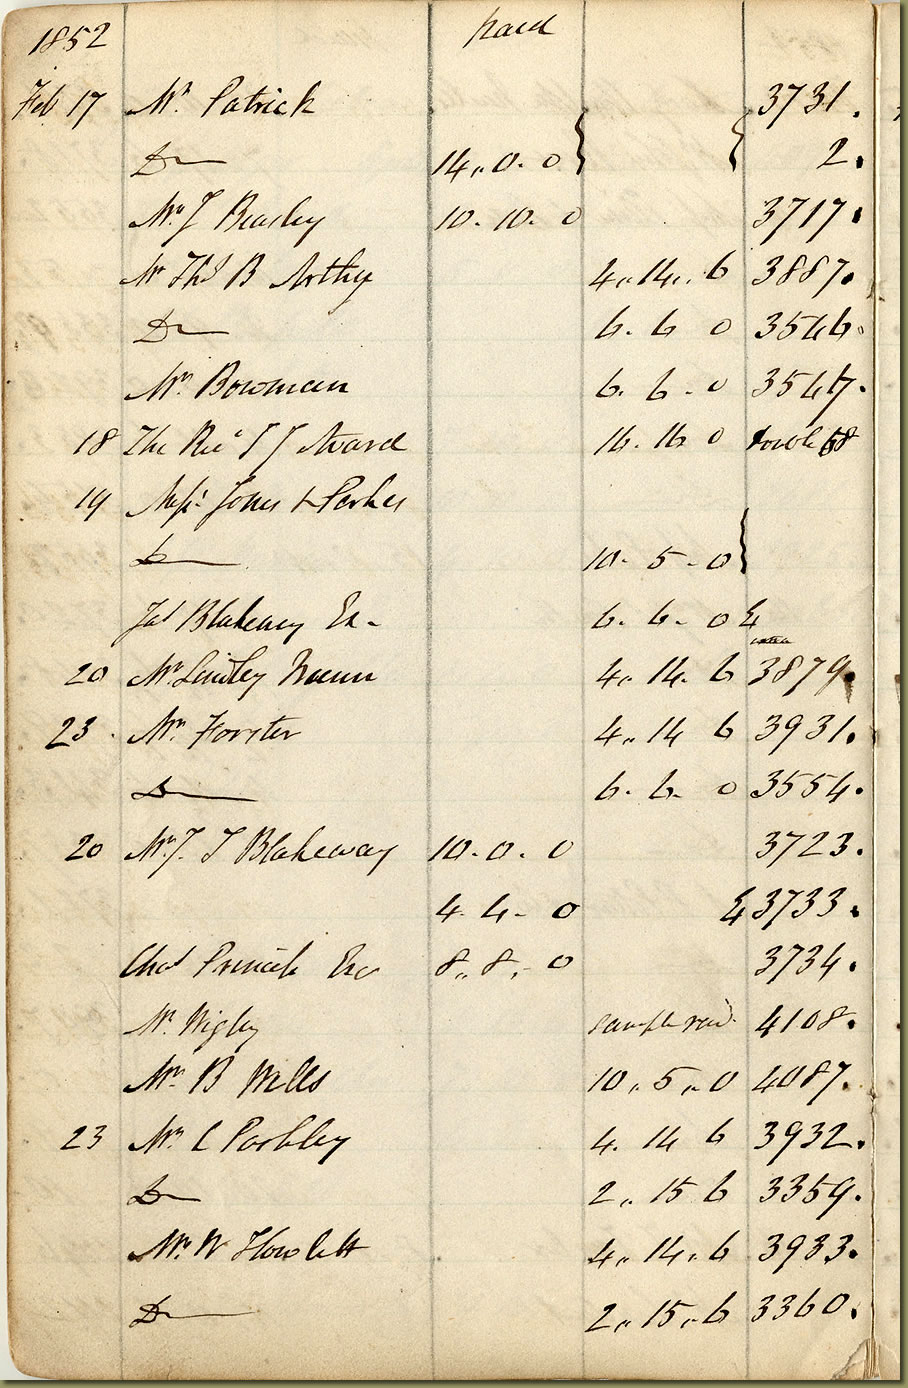 1852 paid
Feb 17 Mr Patrick 3731.
Do 14,,0.0 2.
Mr J Beasley 10.10.0 3717.
Mr Thos B Arthy 4,,14,,6 3887.
Do 6.6 0 3546.
Mr Bowman 6.6-0 3547.
18 The Revd J J 16.16 0
19 Messrs Jones & Parkes
Do 10-5-0
Jas Blakeway Es- 6.6-0 &
20 Mr Lindley Nunn 4.14.6 3879.
23. Mr Forster 4,,14 6 3931.
Do 6.6-0 3554.
20 Mr J. T Blakeway 10-0.0 3723.
4.4-0 & 3733.
Chas Esq 8,,8,-0 3734.
Mr Wigley sample 4108.
Mr B Wells 10,,5,,0 4087.
23 Mr C 4.14 6 3932.
Do 2,,15 6 3359.
Mr W Howlett 4,,14,,6 3933.
Do 2,,15,,6 3360.